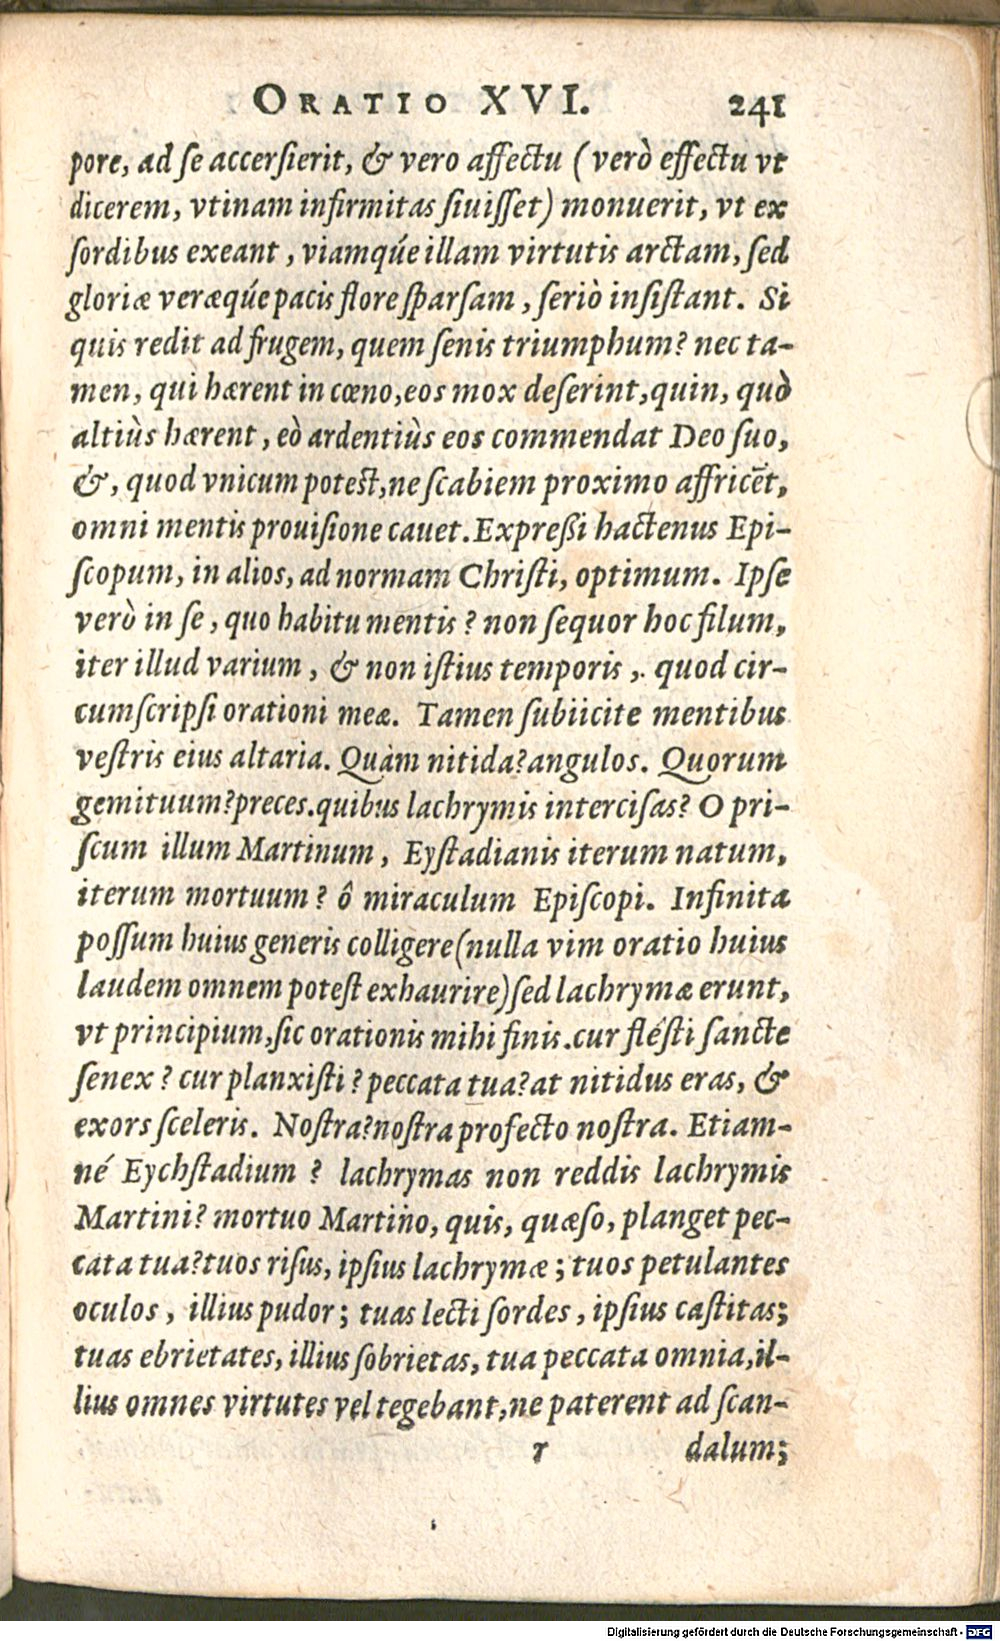 ORATIO XVI. 241
pore, ad ſe accerſierit, & vero affectu (verò effectu vt
dicerem, vtinam infirmitas ſiuiſſet) monuerit, vt ex
ſordibus exeant, viamqúe illam virtutis arctam, ſed
gloriæ veræqúe pacis flore ſparſam, ſeriò inſiſtant. Si
quis redit ad frugem, quem ſenis triumphum? nec ta-
men, qui hærent in cœno, eos mox deſerint, quin, quò
altiùs hærent, eò ardentiùs eos commendat Deo ſuo,
&, quod vnicum poteſt, ne ſcabiem proximo affricēt,
omni mentis prouiſione cauet. Expreßi hactenus Epi-
ſcopum, in alios, ad normam Chriſti, optimum. Ipſe
verò in ſe, quo habitu mentis? non ſequor hoc filum,
iter illud varium, & non iſtius temporis, quod cir-
cumſcripſi orationi meæ. Tamen ſubiicite mentibus
veſtris eius altaria. Quàm nitida? angulos. Quorum
gemituum? preces. quibus lachrymis interciſas? O pri-
ſcum illum Martinum, Eyſtadianis iterum natum,
iterum mortuum? ô miraculum Epiſcopi. Infinita
poſſum huius generis colligere (nulla vim oratio huius
laudem omnem poteſt exhaurire) ſed lachrymæ erunt,
vt principium, ſic orationis mihi finis. cur fléſti ſancte
ſenex? cur planxiſti? peccata tua? at nitidus eras, &
exors ſceleris. Noſtra? noſtra profecto noſtra. Etiam-
né Eychſtadium? lachrymas non reddis lachrymis
Martini? mortuo Martino, quis, quæſo, planget pec-
cata tua? tuos riſus, ipſius lachrymæ; tuos petulantes
oculos, illius pudor; tuas lecti ſordes, ipſius caſtitas;
tuas ebrietates, illius ſobrietas, tua peccata omnia, il-
lius omnes virtutes vel tegebant, ne paterent ad ſcan-
r dalum;
Digitalisierung gefördert durch die Deutsche Forschungsgemeinschaft - DFG